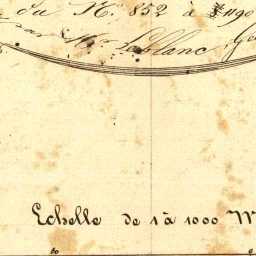 du N.º 852 à 1190
Mr. Leblanc Gé
Echelle de 1 à 1000 M
80